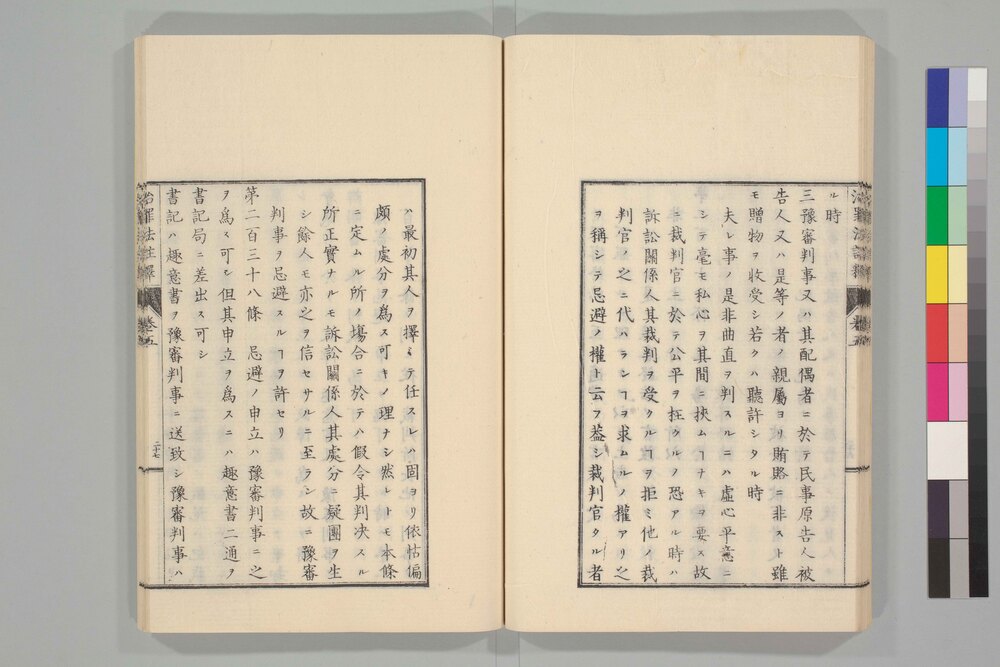 ル時
三豫審判事又ハ其配偶者ニ於テ民事原告人被
告人又ハ是等ノ者ノ親屬ヨリ賄賂ニ非スト雖
モ贈物ヲ收受シ若クハ聽許シタル時
夫レ事ノ是非曲直ヲ判スルニハ虛心平意ニ
シテ毫モ私心ヲ其間ニ挾ムヿナキヲ要ス故
ニ裁判官ニ於テ公平ヲ抂クルノ恐アル時ハ
訴訟關係人其裁判ヲ受クルヿヲ拒ミ他ノ裁
判官ノ之ニ代ハランヿヲ求ムルノ權アリ之
ヲ稱シテ忌避ノ權ト云フ葢シ裁判官タル者
ハ最初其人ヲ擇ミテ任スレハ固ヨリ依怙偏
頗ノ處分ヲ爲ス可キノ理ナシ然レトモ本條
ニ定ムル所ノ塲合ニ於テハ假令其判决スル
所正實ナルモ訴訟關係人其處分ニ疑團ヲ生
シ餘人モ亦之ヲ信セサルニ至ラン故ニ豫審
判事ヲ忌避スルヿヲ許セリ
第二百三十八條 忌避ノ申立ハ豫審判事ニ之
ヲ爲ス可シ但其申立ヲ爲スニハ趣意書二通ヲ
書記局ニ差出ス可シ
書記ハ趣意書ヲ豫審判事ニ送致シ豫審判事ハ
治罪法註釋 卷五 二十七